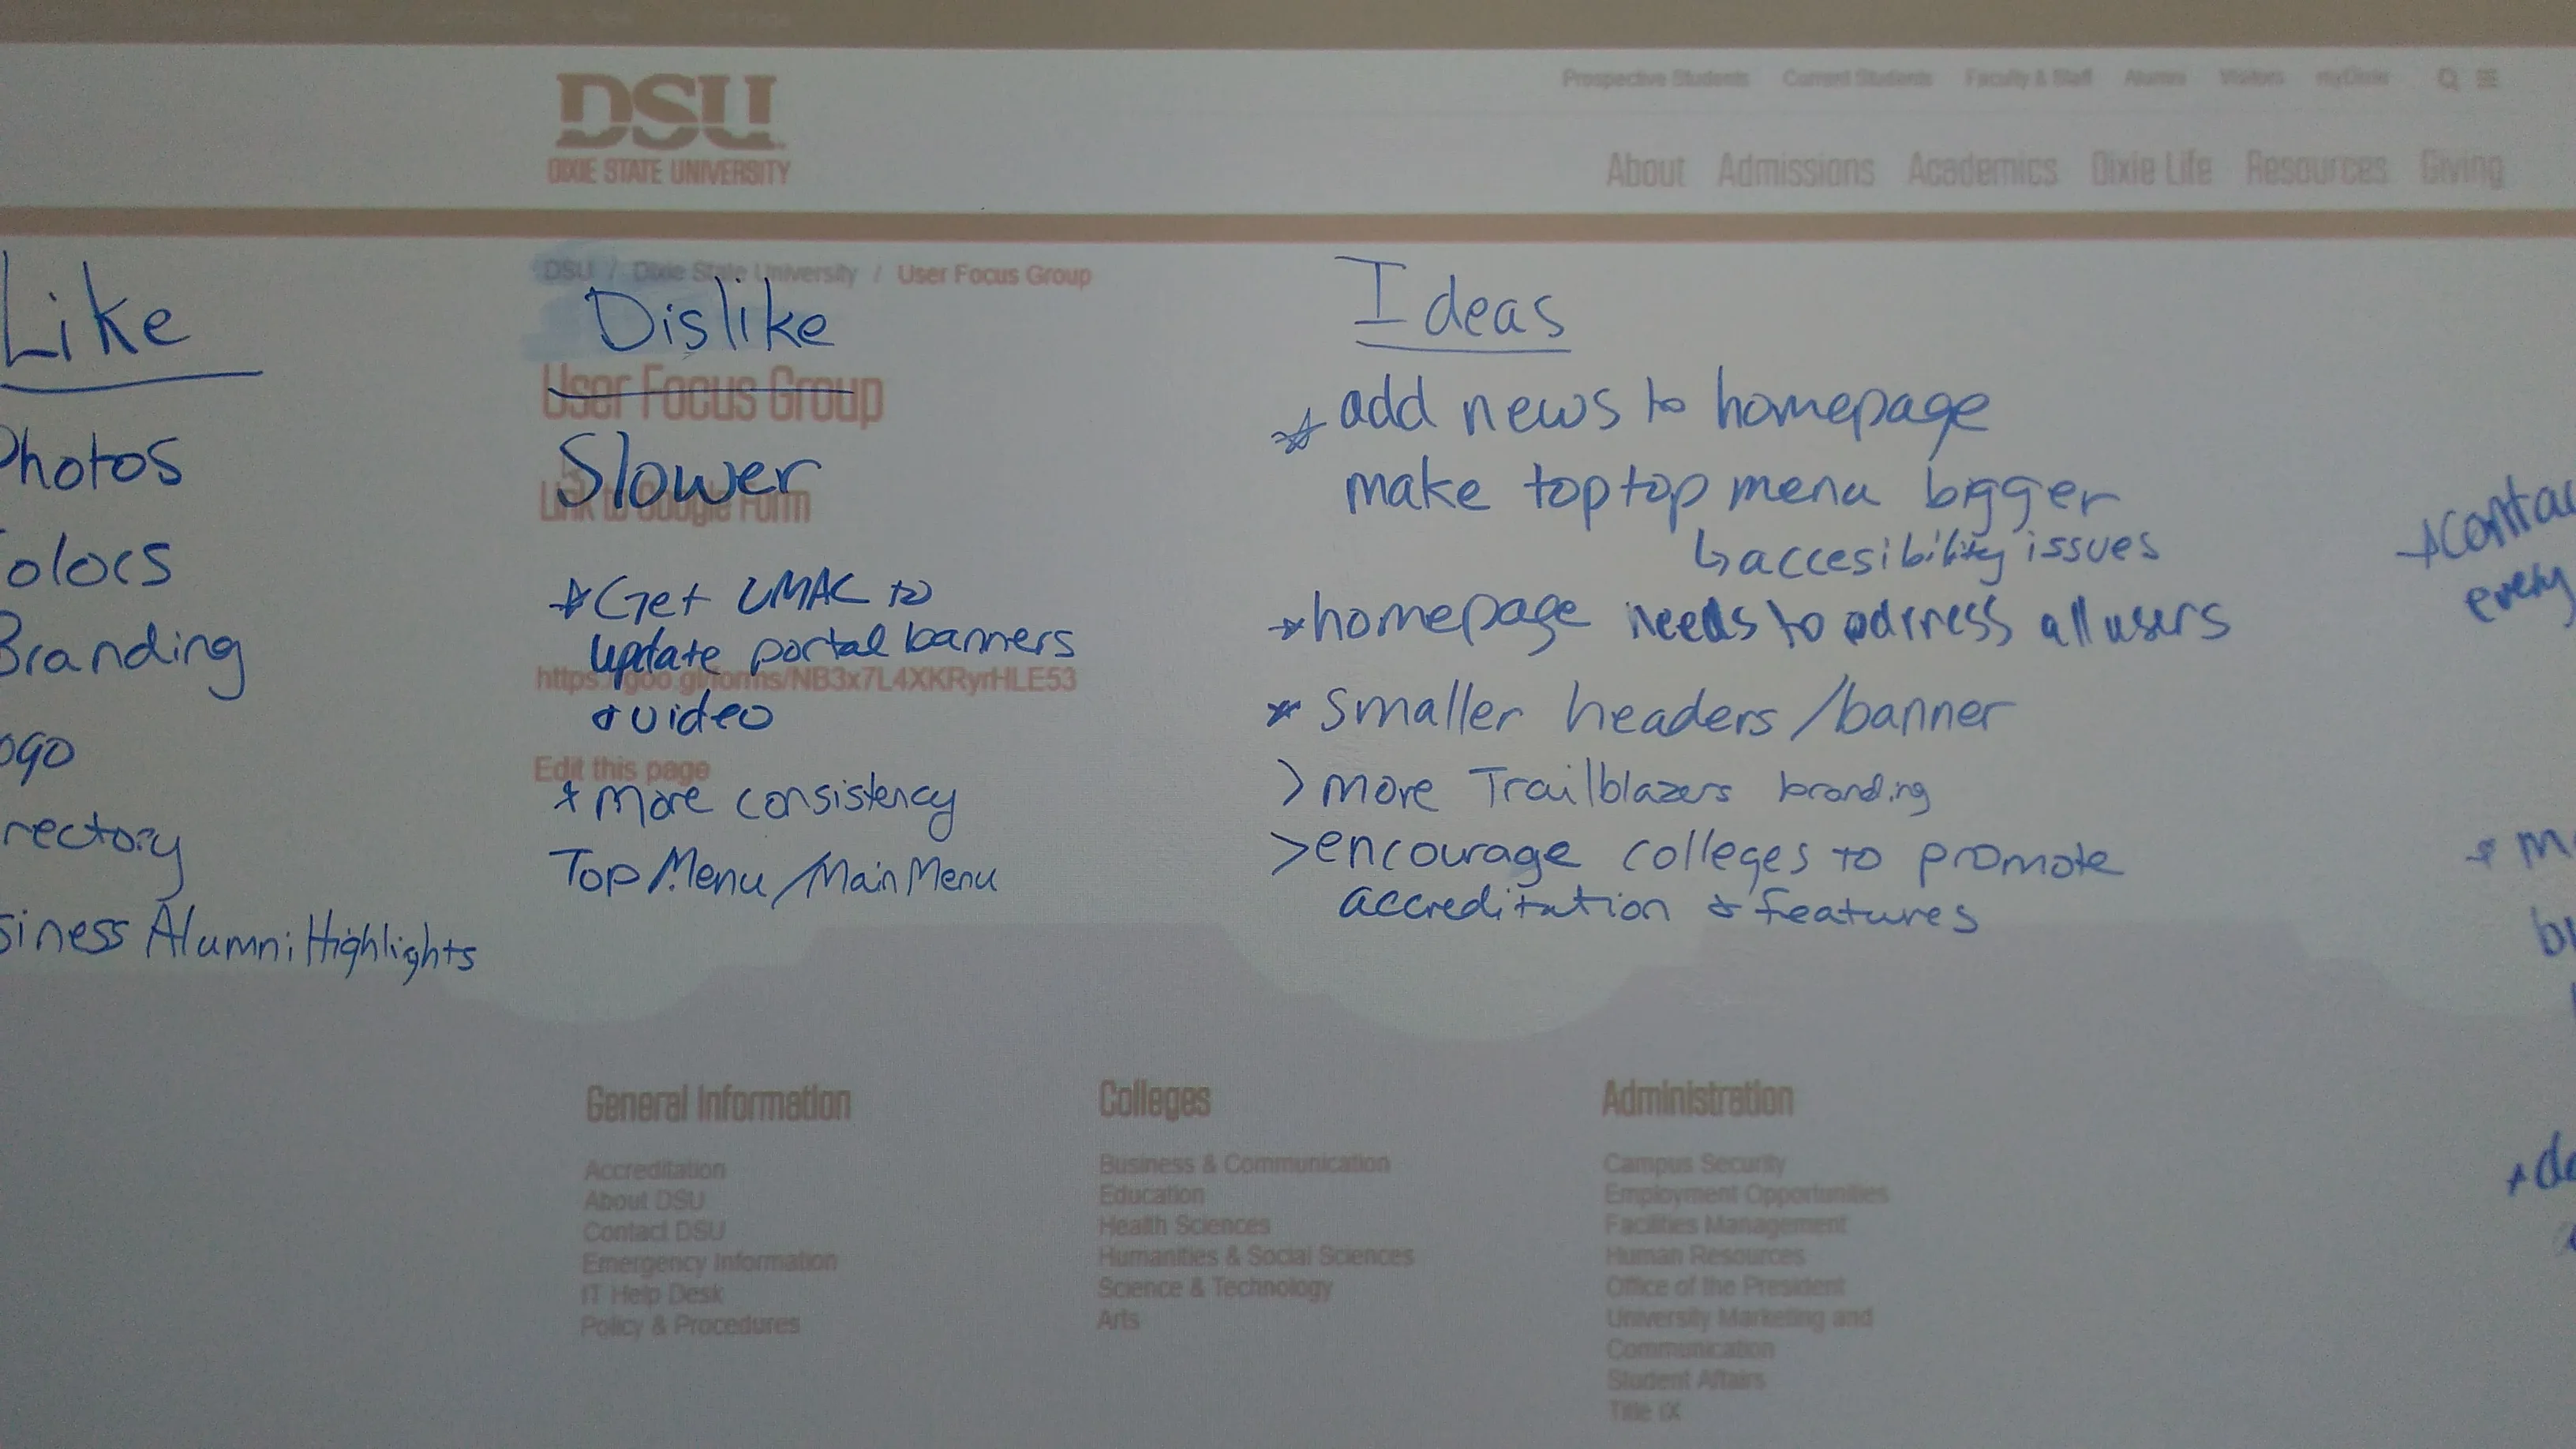 DSU
DIXIE STATE UNIVERSITY
Prospective Students Current Students Faculty & Staff Alumni Visitors myDixie
About Admissions Academics Dixie Life Resources Giving
Like
Photos
Colors
Branding
ogo
rectory
siness Alumni Highlights
DSU / Dixie State University / User Focus Group
Dislike
User Focus Group
Slower
Link to Google Form
* Get UMAC to
update portal banners
https://goo.gl/forms/NB3x7L4XKRyrHLE53
& video
Edit this page
* more consistency
Top Menu / Main Menu
Ideas
* add news to homepage
make top top menu bigger
↳ accesibility issues
* homepage needs to adrress all users
* smaller headers / banner
> more Trailblazers branding
> encourage colleges to promote
accreditation & features
General Information
Accreditation
About DSU
Contact DSU
Emergency Information
IT Help Desk
Policy & Procedures
Colleges
Business & Communication
Education
Health Sciences
Humanities & Social Sciences
Science & Technology
Arts
Administration
Campus Security
Employment Opportunities
Facilities Management
Human Resources
Office of the President
University Marketing and
Communication
Student Affairs
Title IX
every